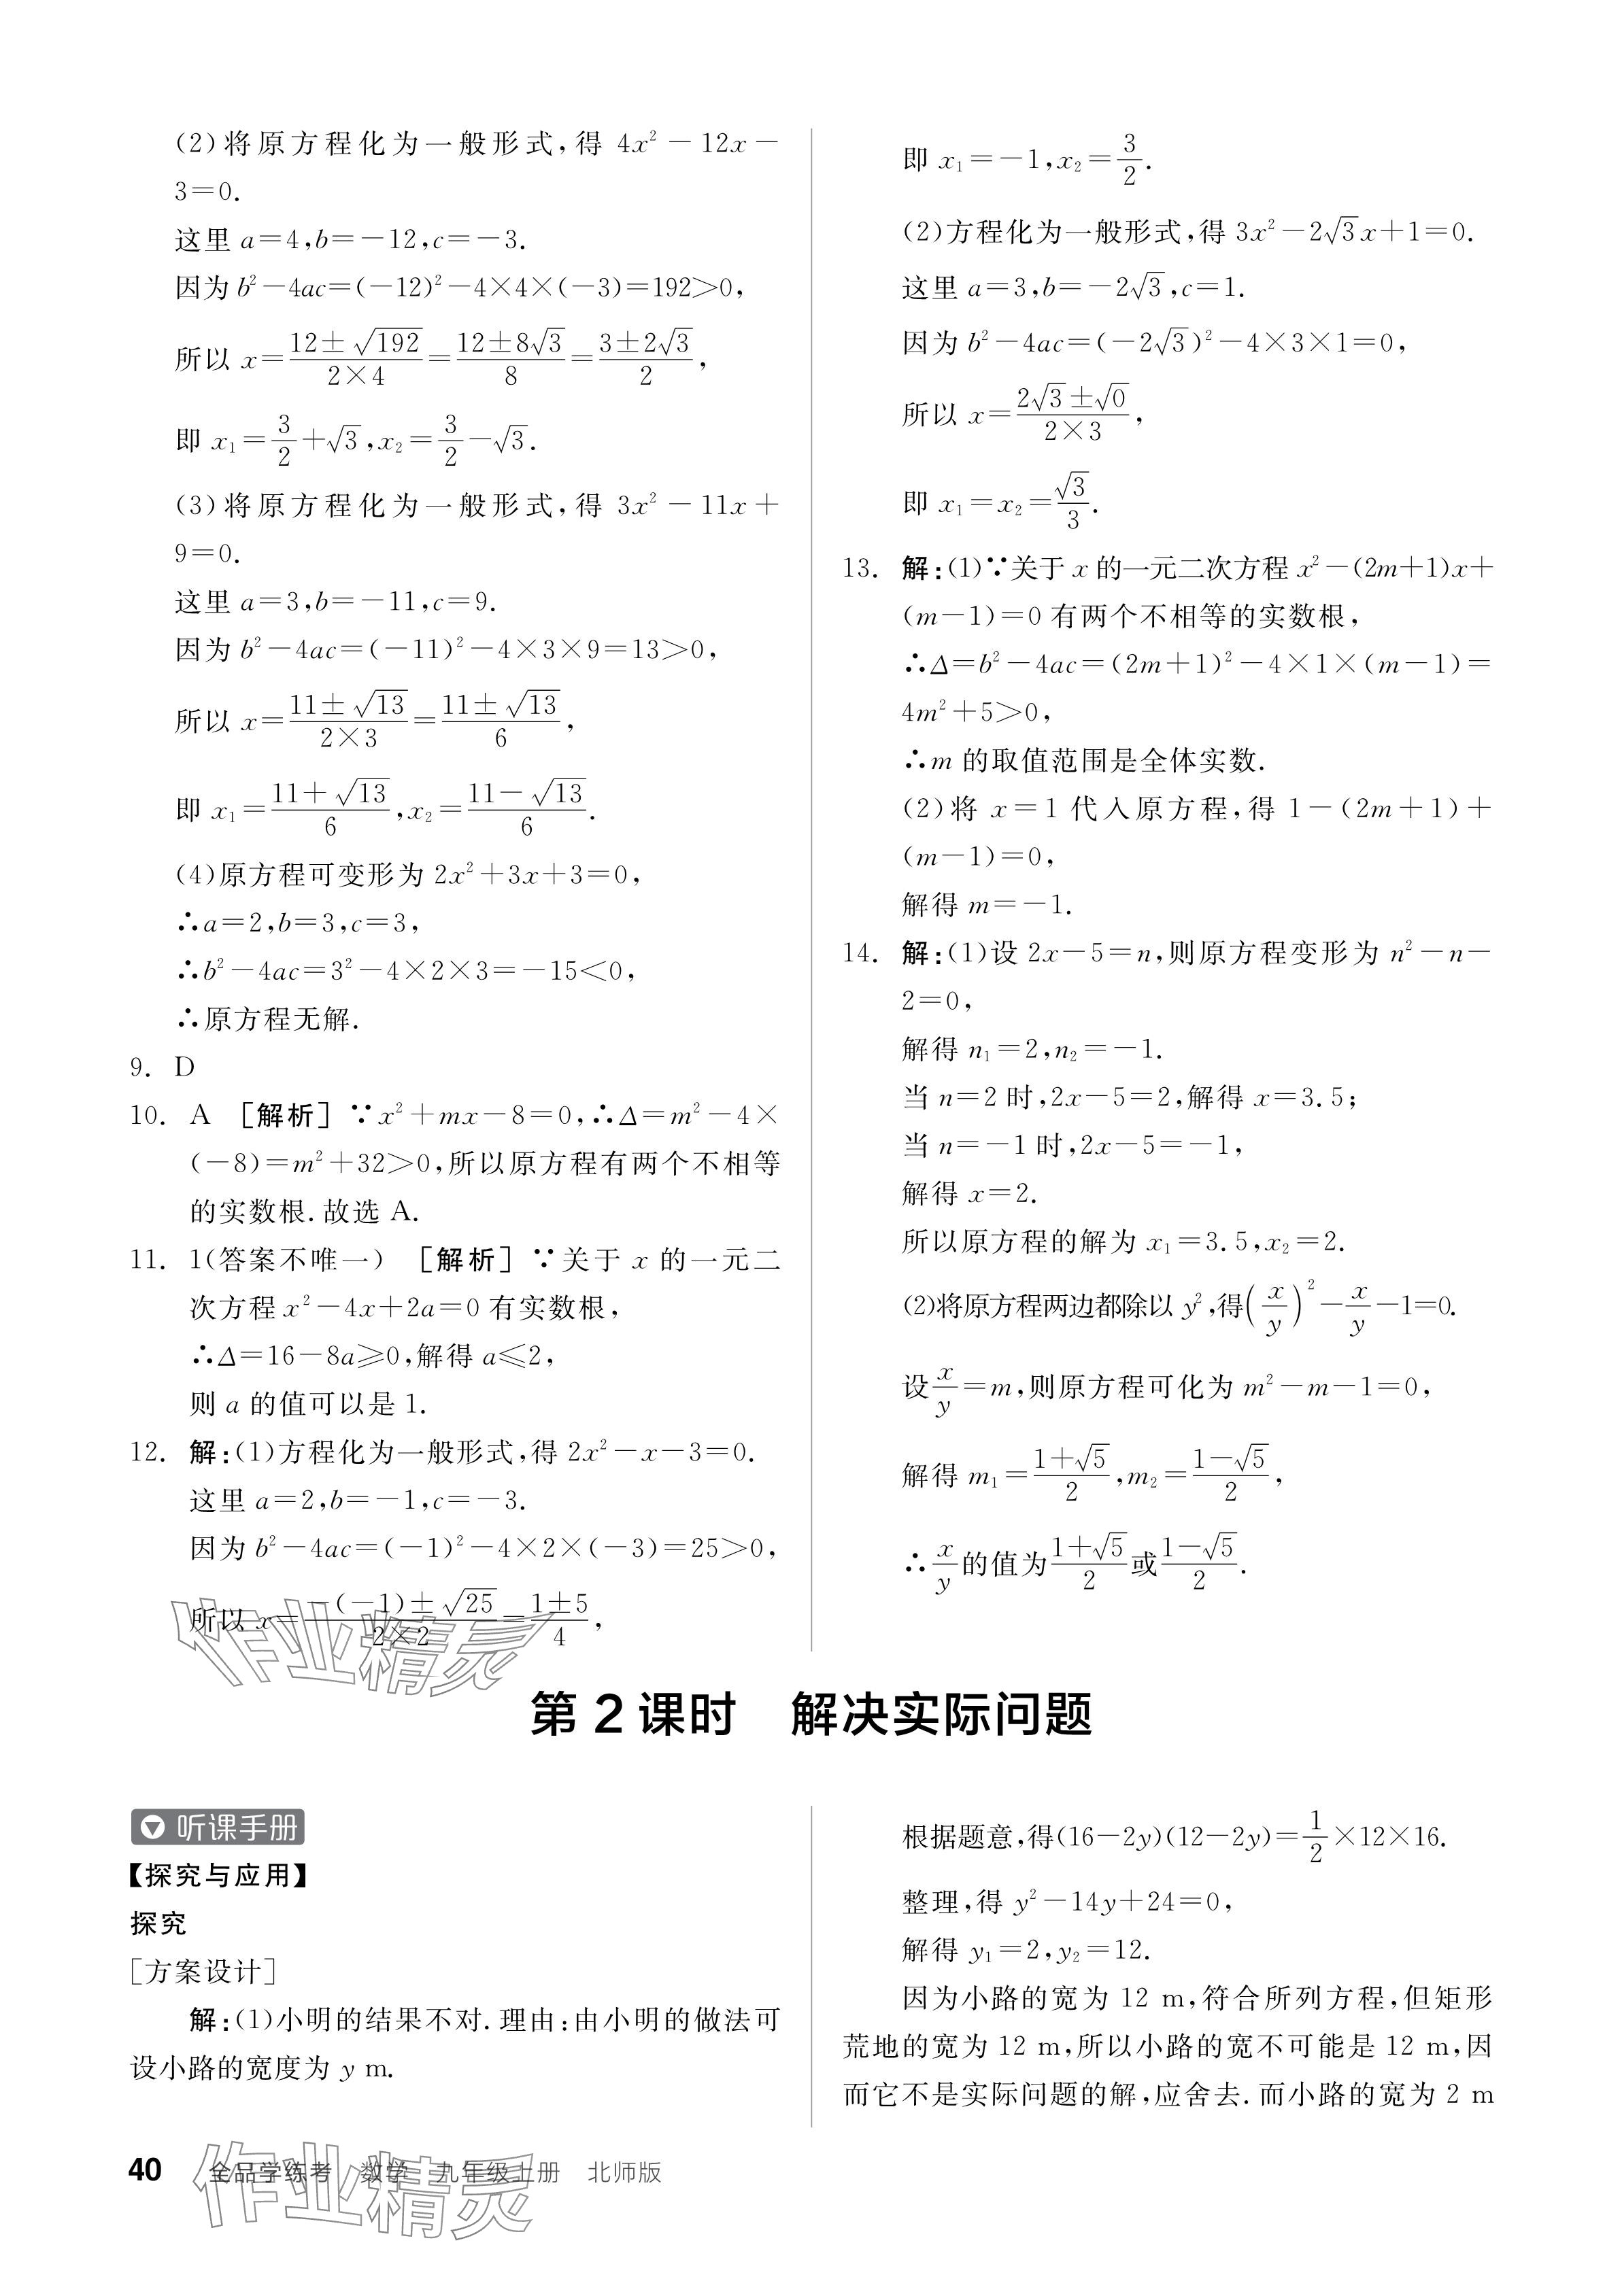 (2)将原方程化为一般形式,得 4x²－12x－
3＝0.
这里 a＝4,b＝－12,c＝－3.
因为 b²－4ac＝(－12)²－4×4×(－3)＝192＞0,
所以 x＝(12±√192)/(2×4)＝(12±8√3)/8＝(3±2√3)/2,
即 x₁＝3/2＋√3,x₂＝3/2－√3.
(3)将原方程化为一般形式,得 3x²－11x＋
9＝0.
这里 a＝3,b＝－11,c＝9.
因为 b²－4ac＝(－11)²－4×3×9＝13＞0,
所以 x＝(11±√13)/(2×3)＝(11±√13)/6,
即 x₁＝(11＋√13)/6,x₂＝(11－√13)/6.
(4)原方程可变形为 2x²＋3x＋3＝0,
∴a＝2,b＝3,c＝3,
∴b²－4ac＝3²－4×2×3＝－15＜0,
∴原方程无解.
9. D
10. A ［解析］∵x²＋mx－8＝0,∴Δ＝m²－4×
(－8)＝m²＋32＞0,所以原方程有两个不相等
的实数根.故选 A.
11. 1(答案不唯一) ［解析］∵关于 x 的一元二
次方程 x²－4x＋2a＝0 有实数根,
∴Δ＝16－8a≥0,解得 a≤2,
则 a 的值可以是 1.
12. 解:(1)方程化为一般形式,得 2x²－x－3＝0.
这里 a＝2,b＝－1,c＝－3.
因为 b²－4ac＝(－1)²－4×2×(－3)＝25＞0,
所以 x＝(－(－1)±√25)/(2×2)＝(1±5)/4,
作业精灵
即 x₁＝－1,x₂＝3/2.
(2)方程化为一般形式,得 3x²－2√3x＋1＝0.
这里 a＝3,b＝－2√3,c＝1.
因为 b²－4ac＝(－2√3)²－4×3×1＝0,
所以 x＝(2√3±√0)/(2×3),
即 x₁＝x₂＝√3/3.
13. 解:(1)∵关于 x 的一元二次方程 x²－(2m＋1)x＋
(m－1)＝0 有两个不相等的实数根,
∴Δ＝b²－4ac＝(2m＋1)²－4×1×(m－1)＝
4m²＋5＞0,
∴m 的取值范围是全体实数.
(2)将 x＝1 代入原方程,得 1－(2m＋1)＋
(m－1)＝0,
解得 m＝－1.
14. 解:(1)设 2x－5＝n,则原方程变形为 n²－n－
2＝0,
解得 n₁＝2,n₂＝－1.
当 n＝2 时,2x－5＝2,解得 x＝3.5;
当 n＝－1 时,2x－5＝－1,
解得 x＝2.
所以原方程的解为 x₁＝3.5,x₂＝2.
(2)将原方程两边都除以 y²,得(x/y)²－x/y－1＝0.
设x/y＝m,则原方程可化为 m²－m－1＝0,
解得 m₁＝(1＋√5)/2,m₂＝(1－√5)/2,
∴x/y的值为(1＋√5)/2或(1－√5)/2.
第 2 课时 解决实际问题
听课手册
【探究与应用】
探究
［方案设计］
解:(1)小明的结果不对.理由:由小明的做法可
设小路的宽度为 y m.
根据题意,得(16－2y)(12－2y)＝1/2×12×16.
整理,得 y²－14y＋24＝0,
解得 y₁＝2,y₂＝12.
因为小路的宽为 12 m,符合所列方程,但矩形
荒地的宽为 12 m,所以小路的宽不可能是 12 m,因
而它不是实际问题的解,应舍去.而小路的宽为 2 m
40 全品学练考 数学 九年级上册 北师版
作业精灵